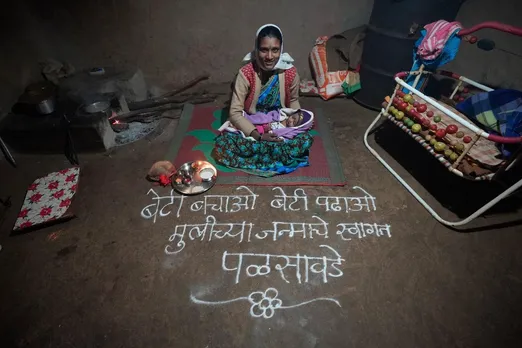 बेटी बचाओ बेटी पढाओ
मुलीच्या जन्माचे स्वागत
पळसावडे